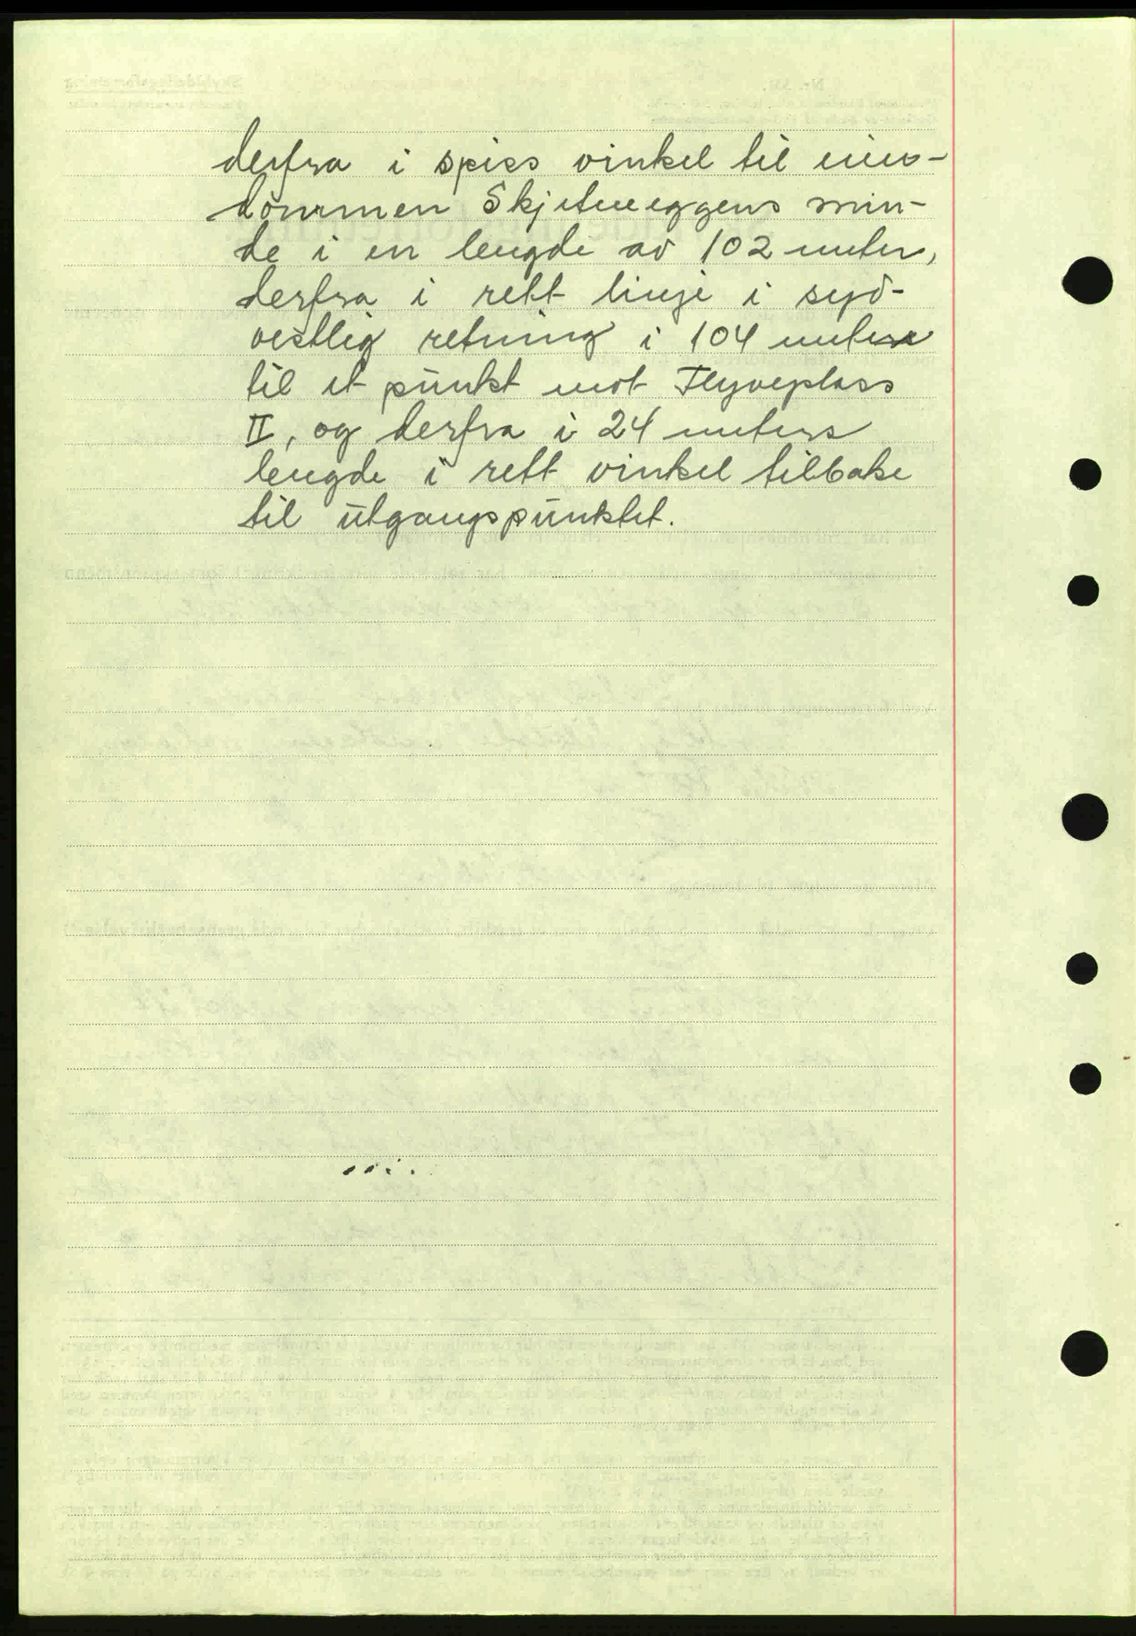 derfra i spiss vinkel til eien-
dommen Skjetneeggens min-
de i en lengde av 102 meter,
derfra i rett linje i syd-
vestlig retning i 104 meter
til et punkt mot Flyveplass
II, og derfra i 24 meters
lengde i rett vinkel tilbake
til utgangspunktet.